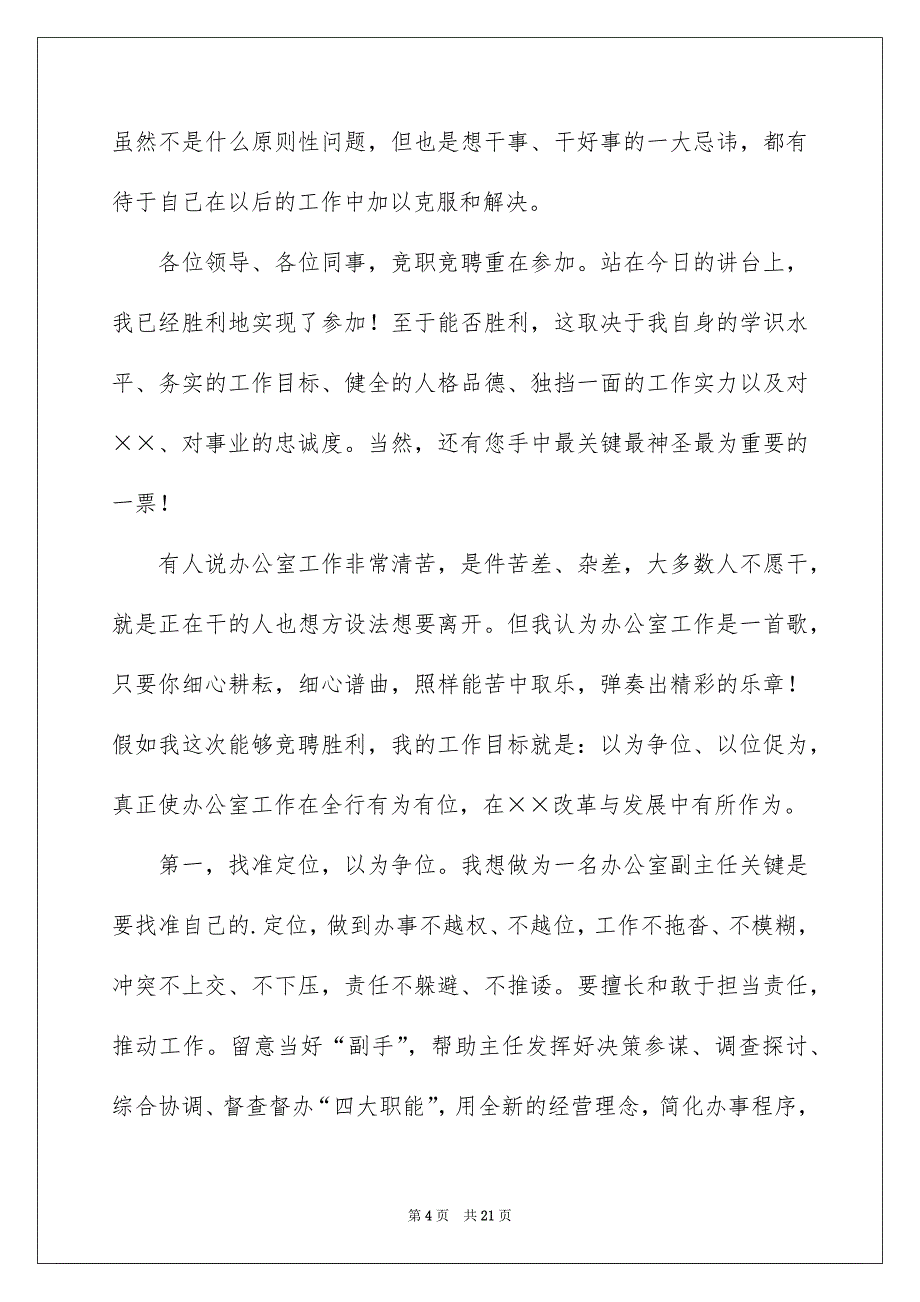 虽然不是什么原则性问题，但也是想干事、干好事的一大忌讳，都有
待于自己在以后的工作中加以克服和解决。
各位领导、各位同事，竞职竞聘重在参加。站在今日的讲台上，
我已经胜利地实现了参加！至于能否胜利，这取决于我自身的学识水
平、务实的工作目标、健全的人格品德、独挡一面的工作实力以及对
××、对事业的忠诚度。当然，还有您手中最关键最神圣最为重要的
一票！
有人说办公室工作非常清苦，是件苦差、杂差，大多数人不愿干，
就是正在干的人也想方设法想要离开。但我认为办公室工作是一首歌，
只要你细心耕耘，细心谱曲，照样能苦中取乐，弹奏出精彩的乐章！
假如我这次能够竞聘胜利，我的工作目标就是：以为争位、以位促为，
真正使办公室工作在全行有为有位，在××改革与发展中有所作为。
第一，找准定位，以为争位。我想做为一名办公室副主任关键是
要找准自己的.定位，做到办事不越权、不越位，工作不拖沓、不模糊，
冲突不上交、不下压，责任不躲避、不推诿。要擅长和敢于担当责任，
推动工作。留意当好“副手”，帮助主任发挥好决策参谋、调查探讨、
综合协调、督查督办“四大职能”，用全新的经营理念，简化办事程序，
第 4 页 共 21 页